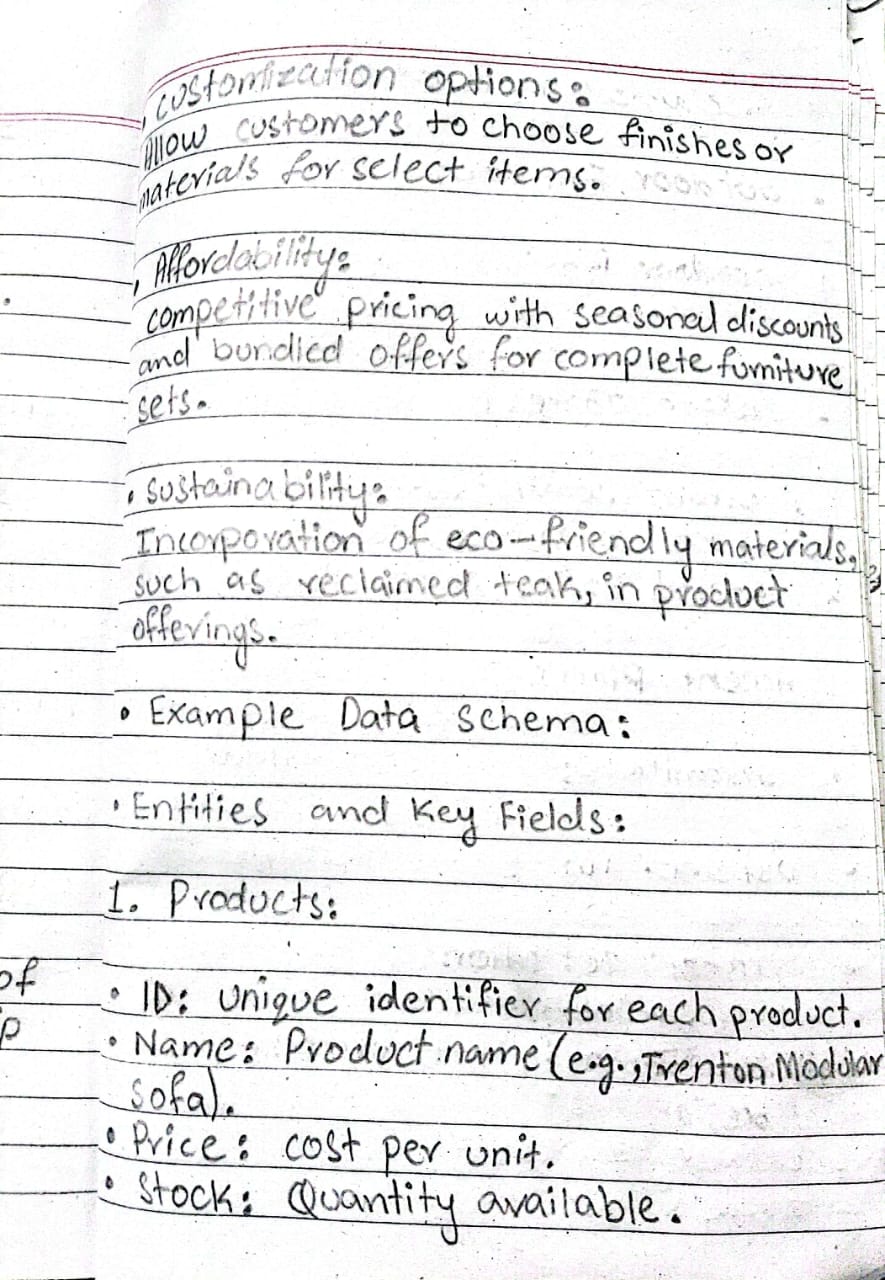 • customization options:
Allow customers to choose finishes or
materials for select items.
• Affordability:
competitive pricing with seasonal discounts
and bundled offers for complete furniture
sets.
• sustainability:
Incorporation of eco-friendly materials,
such as reclaimed teak, in product
offerings.
• Example Data schema:
• Entities and Key Fields:
1. Products:
• ID: unique identifier for each product.
• Name: Product name (e.g., Trenton Modular
sofa).
• Price: cost per unit.
• Stock: Quantity available.
of